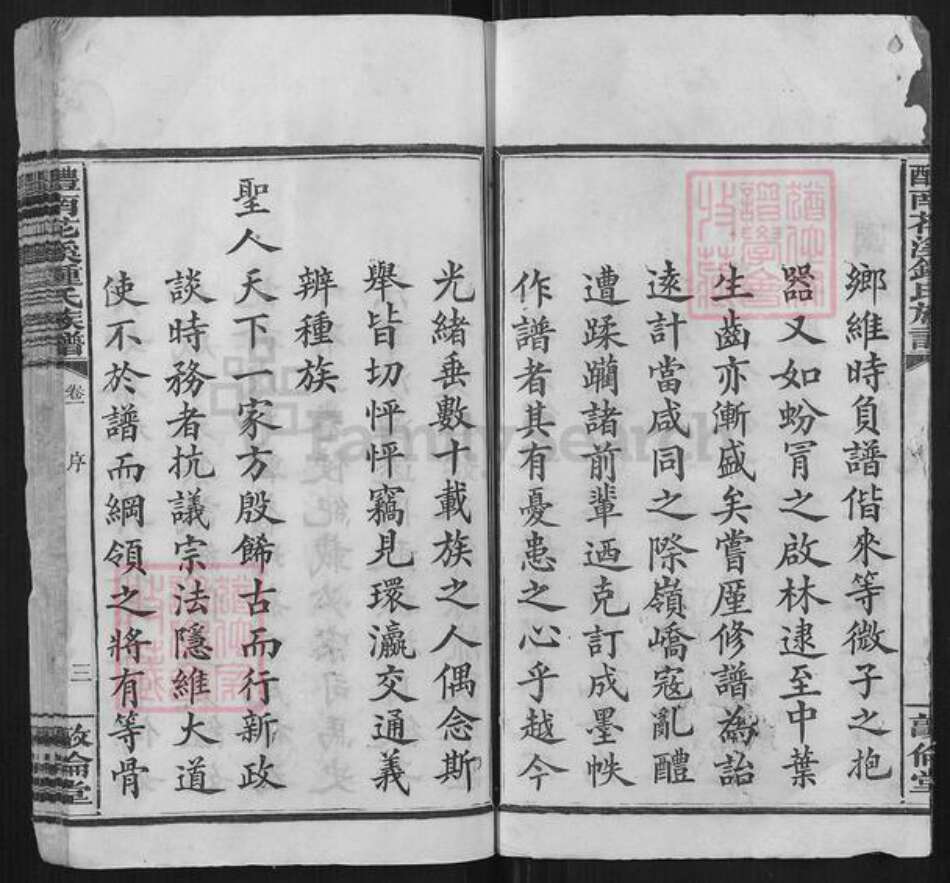 鄉維時負譜偕來等微子之抱
器又如蚡冐之啟林逮至中葉
生齒亦漸盛矣嘗厪修譜為詒
遠計當咸同之際嶺嶠寇亂醴
遭蹂躪諸前輩迺克訂成墨帙
作譜者其有憂患之心乎越今
光緒垂數十載族之人偶念斯
舉皆切怦怦竊見環瀛交通義
辨種族
聖人天下一家方殷餙古而行新政
談時務者抗議宗法隱維大道
使不於譜而綱領之將有等骨
醴南花溪鍾氏族譜
卷一
序
三
敦倫堂
FamilySearch